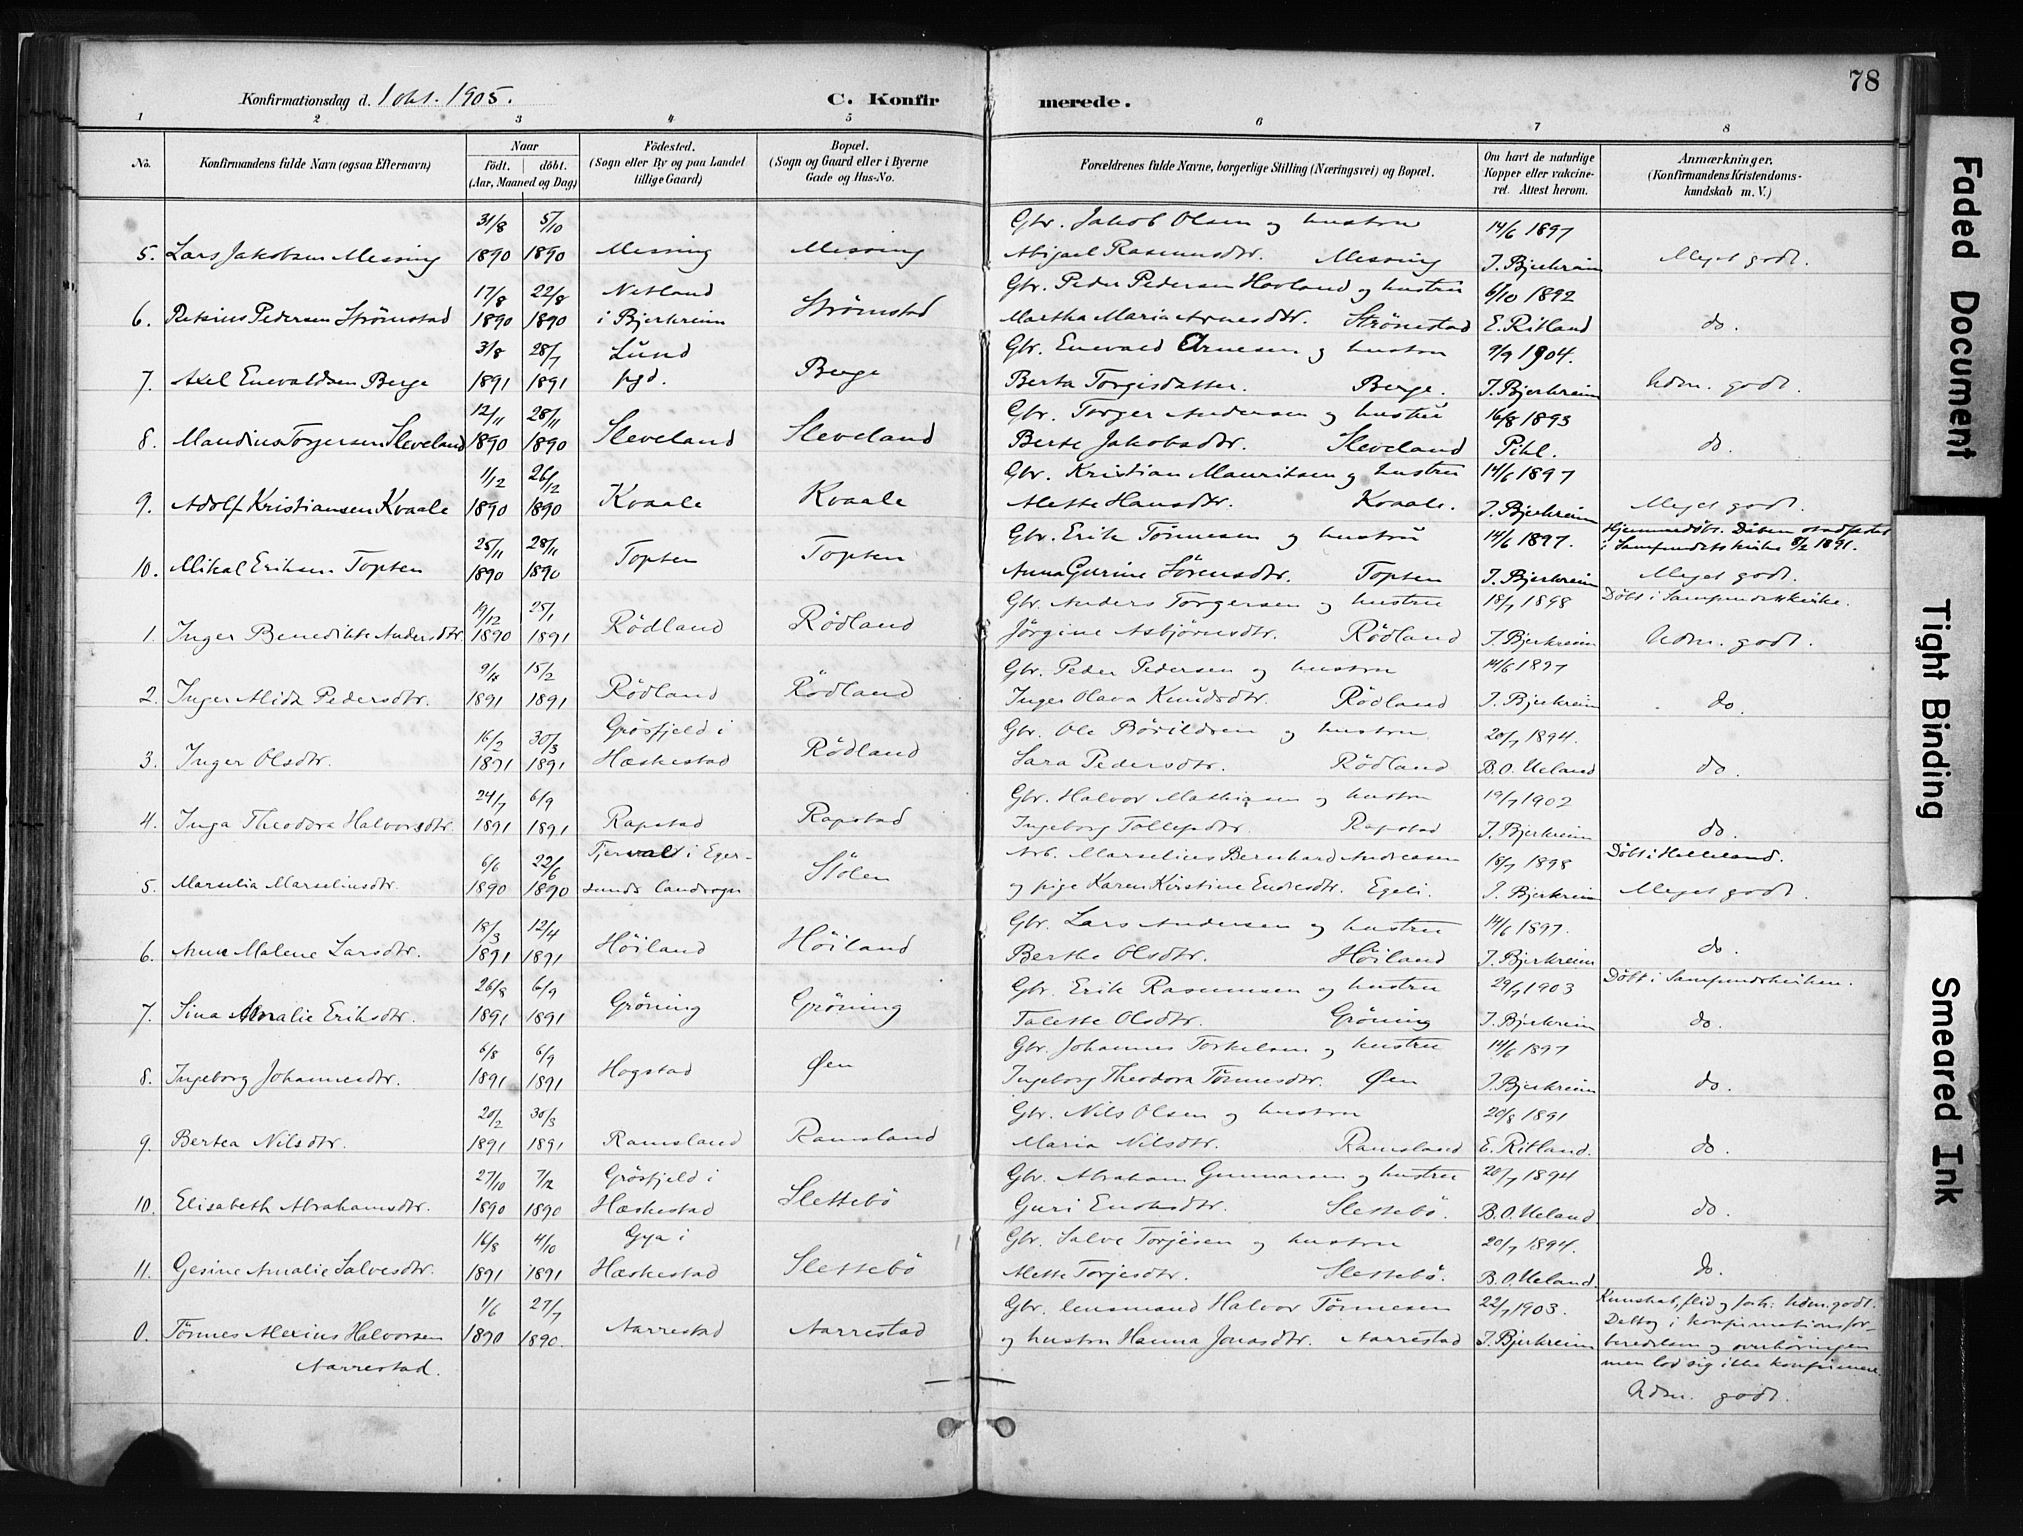 78
Konfirmationsdag d. 1 okt. 1905.
C. Konfirmerede.
1 2 3 4 5 6 7 8
No. Konfirmandens fulde Navn (ogsaa Efternavn) Naar født. døbt. (Aar, Maaned og Dag) Fødested. (Sogn eller By og paa Landet tillige Gaard) Bopæl. (Sogn og Gaard eller i Byerne Gade og Hus-No. Forældrenes fulde Navne, borgerlige Stilling (Næringsvei) og Bopæl. Om havt de naturlige Kopper eller vakcineret. Attest herom. Anmærkninger. (Konfirmandens Kristendomskundskab m. V.)
31/8 5/10 Gbr. Jakob Olsen og hustru 14/6 1897
5. Lars Jakobsen Messing 1890 1890 Messing Messing Abigael Rasmusdtr. Messing J. Bjerkreim Meget godt.
17/8 22/8 Netland Gbr. Peder Pedersen Havland og hustru 6/10 1892
6. Pedersen Strømstad 1890 1890 i Bjerkreim Strømstad Martha Maria Arnesdtr. Strømstad E. Ritland do.
3/8 28/7 Lund Gbr. Enevald Arnesen og hustru 9/9 1904.
7. Axel Enevaldsen Berge 1891 1891 pgd. Berge Berta Torgisdatter. Berge. J. Bjerkreim Udm. godt.
12/11 28/11 Gbr. Torger Andersen og hustru 16/8 1893
8. Maudius Torgersen Sleveland 1890 1890 Sleveland Sleveland Berte Jakobsdtr. Sleveland Pihl. do.
1/12 26/12 Gbr. Kristian Mauritsen og hustru 14/6 1897
9. Adolf Kristiansen Kvaale 1890 1890 Kvaale Kvaale Alette Hansdtr. Kvaale. J. Bjerkreim Meget godt.
25/11 28/11 Gbr. Erik Tønnesen og hustru 14/6 1897. Hjemmedøbt. Daaben stadfestet i Samfundets kirke 8/2 1891.
10. Mikal Eriksen Topten 1890 1890 Topten Topten Anna Gurine Sørensdtr. Topten J. Bjerkreim Meget godt.
19/12 25/1 Gbr. Anders Torgersen og hustru 18/7 1898 Døbt i Samfundetskirke.
1. Inger Benedikte Andersdtr. 1890 1891 Rødland Rødland Jørgine Asbjørnsdtr. Rødland J. Bjerkreim Udm. godt.
15/2 Gbr. Peder Pedersen og hustru 14/6 1897
2. Inger Alida Pedersdtr. 1891 1891 Rødland Rødland Inger Olava Knudsdtr. Rødland J. Bjerkreim do.
16/2 30/3 Grøsfjeld i Gbr. Ole Bøvildsen og hustru 20/7 1894.
3. Inger Olsdtr. 1891 1891 Hæskestad Rødland Sara Pedersdtr. Rødland B.O. Ueland do.
24/7 6/9 Gbr. Halvor Mathiasen og hustru 19/7 1902
4. Inga Theodora Halvorsdtr. 1891 1891 Rapstad Rapstad Ingeborg Tollefsdtr. Rapstad J. Bjerkreim do.
6/6 22/6 i Eger- Arb. Marselius Bernhard Andreasen 18/7 1898 Døbt i Helleland.
5. Marselia Marseliusdtr. 1890 1890 sunds landsogn Stølen og pige Karen Kirstine Endresdtr. Egeli. J. Bjerkreim Meget godt.
18/3 12/4 Gbr. Lars Andersen og hustru 14/6 1897.
6. Anne Malene Larsdtr. 1891 1891 Høiland Høiland Berthe Olsdtr. Høiland J. Bjerkreim do.
26/8 6/9 Gbr. Erik Rasmussen og hustru 29/7 1903 Døbt i Samfundskirken.
7. Sina Amalie Eriksdtr. 1891 1891 Grøning Grøning Talette Olsdtr. Grøning J. Bjerkreim do.
6/8 6/9 Gbr. Johannes Torkelsen og hustru 14/6 1897
8. Ingeborg Johannesdtr. 1891 1891 Hogstad Øen Ingeborg Theodora Tønnesdtr. Øen J. Bjerkreim do.
20/2 30/3 Gbr. Nils Olsen og hustru 20/8 1891
9. Bertea Nilsdtr. 1891 1891 Ramsland Ramsland Maria Nilsdtr. Ramsland E. Ritland. do.
27/10 7/12 Grøsfjeld i Gbr. Abraham Gunnarsen og hustru 20/7 1894
10. Elisabeth Abrahamsdtr. 1890 1890 Hæskestad Slettebø Guri Enoksdtr. Slettebø. B.O. Ueland. do.
16/8 4/10 Gya i Gbr. Salve Torjesen og hustru 20/7 1894.
11. Gesine Amalie Salvesdtr. 1891 1891 Hæskestad Slettebø Alette Torjesdtr. Slettebø. B.O. Ueland. do.
1/6 27/7 Gbr. lensmand Halvor Tønnesen 22/7 1903. Kunskab, flid og forh. Udm. godt.
0. Tønnes Alexius Halvorsen 1890 1890. Aarrestad Aarrestad og hustru Hanna Jonasdtr. Aarrestad J. Bjerkreim Deltog i konfirmationsfor-
Aarrestad. beredelsen og overhøringen
men lod sig ikke konfirmere
Udm. godt.
Faded Document
Tight Binding
Smeared Ink